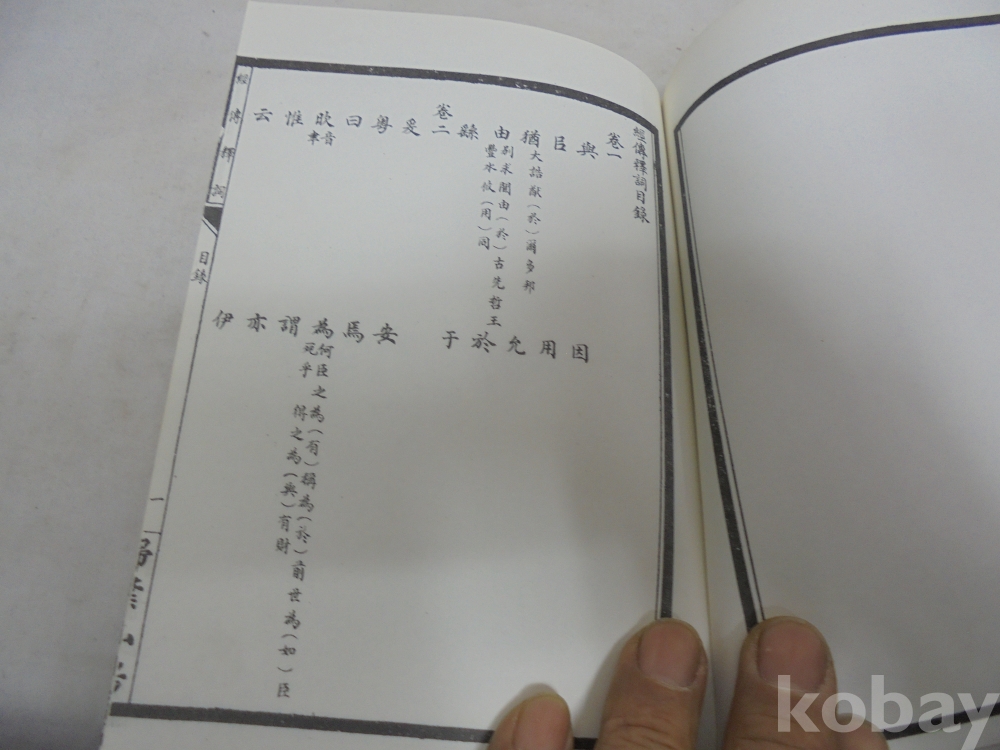 經傳釋詞目錄
卷一
與 因
㠯 用
猶 大誥猷(於)爾多邦 允
由 別求聞由(於)古先哲王 豐水攸(用)同 於
繇 于
卷二
爰 安
粵 焉
曰 為 何臣之為(有)稱為(於)前世為(如)臣死乎 得之為(與)有財
欥 音聿 謂
惟 亦
云 伊
經傳釋詞
目錄
一
kobay